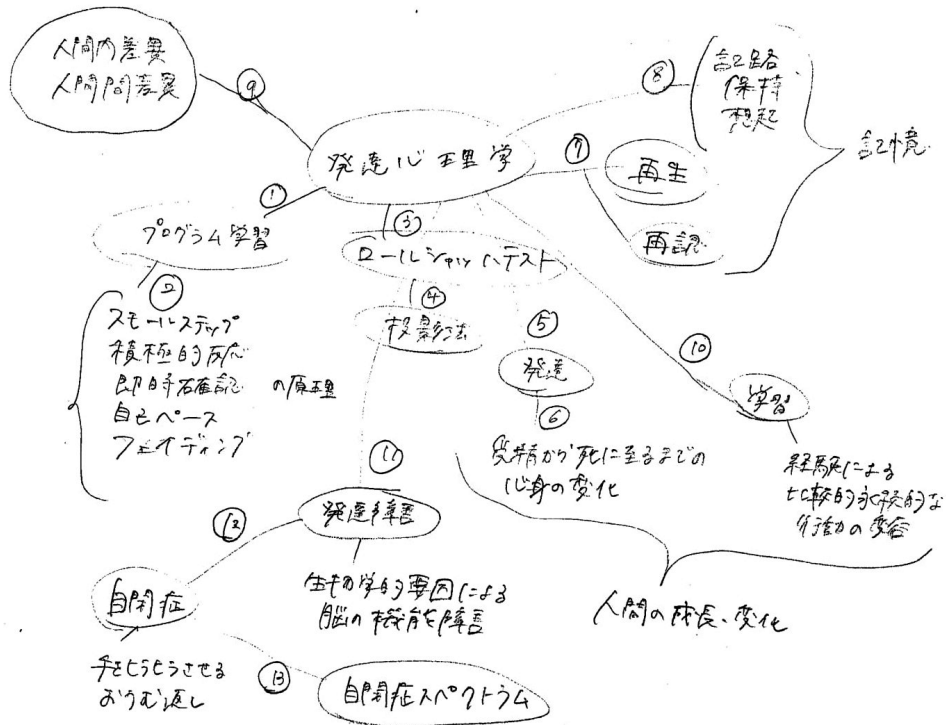 人間内差異
人間間差異
⑨
発達心理学
⑧
記銘
保持
想起
⑦
再生
再認
記憶
①
プログラム学習
②
スモールステップ
積極的反応
即時確認 の原理
自己ペース
フェイディング
③
ロールシャッハテスト
④
投影法
⑤
発達
⑥
受精から死に至るまでの
心身の変化
⑩
学習
経験による
比較的永続的な
行動の変容
人間の成長、変化
⑪
発達障害
生物学的要因による
脳の機能障害
⑫
自閉症
手をひらひらさせる
おうむ返し
⑬
自閉症スペクトラム